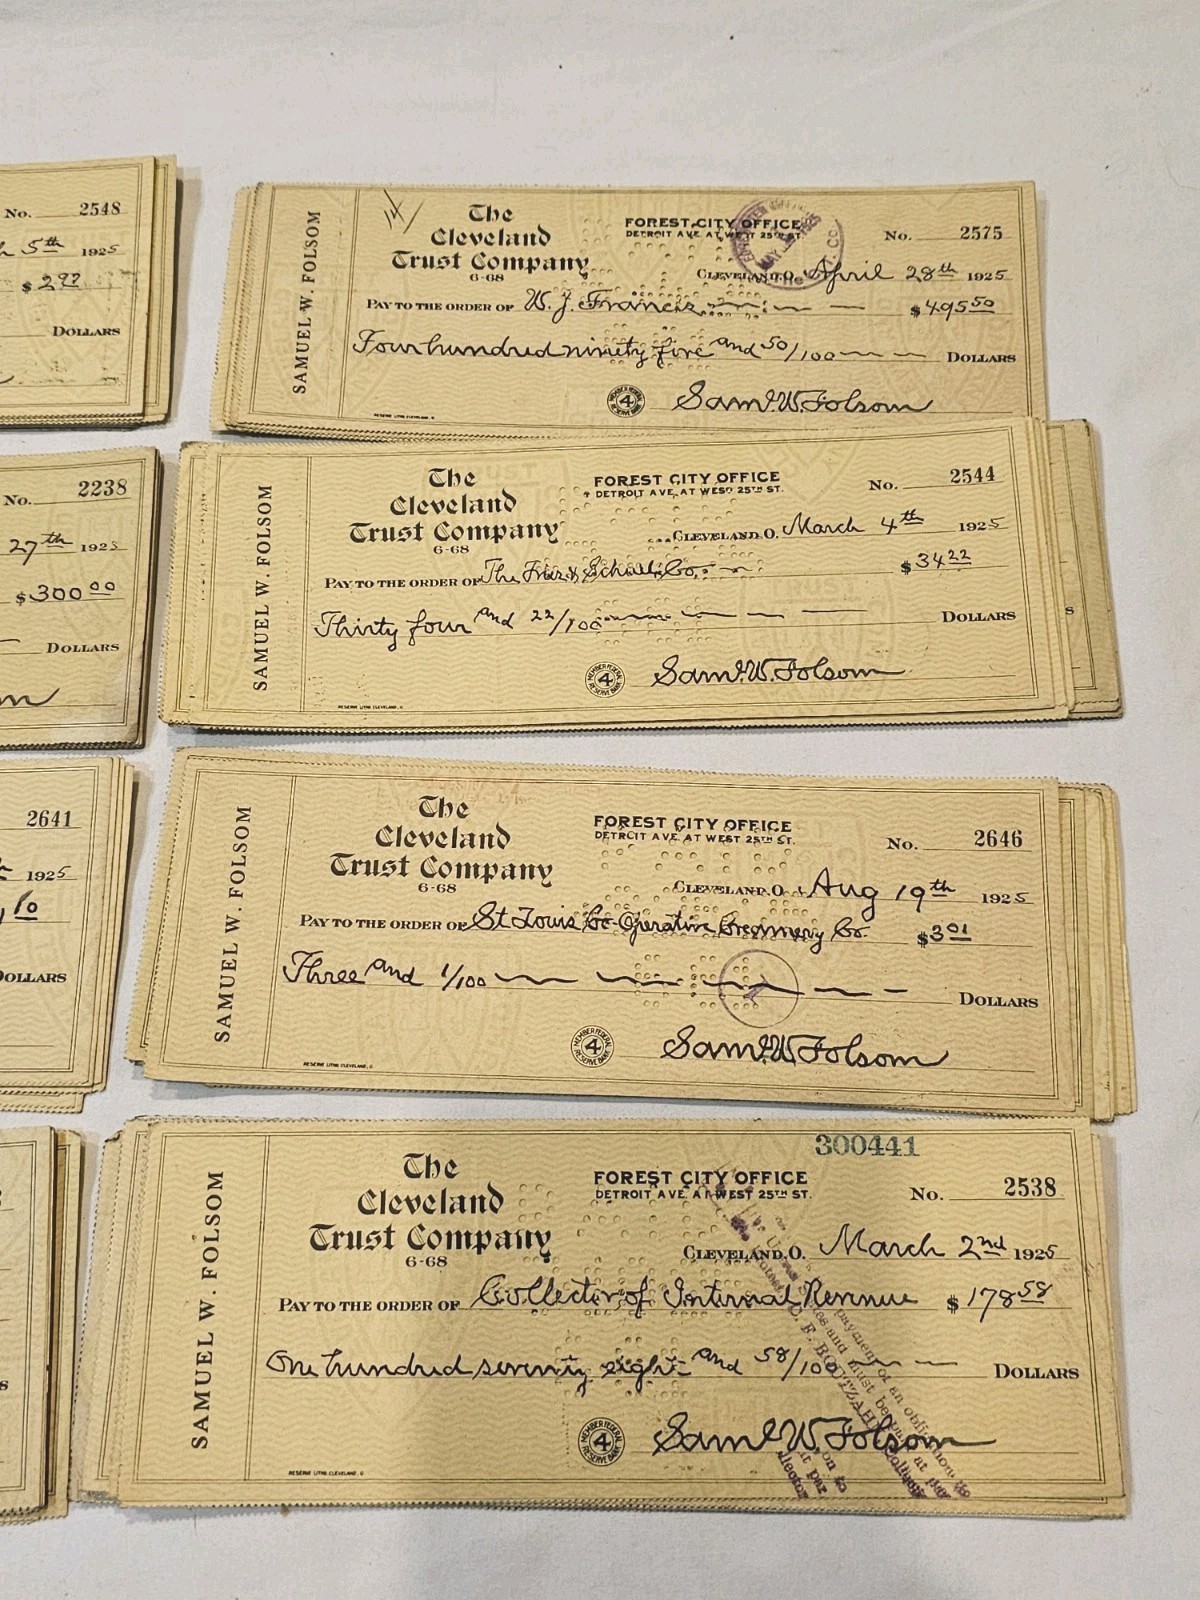 No. 2548
5th 1925
$ 2.97
DOLLARS
No. 2238
27th 1925
$300 00
DOLLARS
2641
1925
10
DOLLARS
SAMUEL W. FOLSOM
The
Cleveland
Trust Company
6-68
FOREST CITY OFFICE
DETROIT AVE. AT WEST 25TH ST.
No. 2575
CLEVELAND, O. April 28th 1925
PAY TO THE ORDER OF W. J. Francis $495 50
Four hundred ninety five and 50/100 DOLLARS
MEMBER FEDERAL RESERVE BANK 4
Sam'l W. Folsom
RESERVE LITHO. CLEVELAND, O.
SAMUEL W. FOLSOM
The
Cleveland
Trust Company
6-68
FOREST CITY OFFICE
DETROIT AVE. AT WEST 25TH ST.
No. 2544
CLEVELAND, O. March 4th 1925
PAY TO THE ORDER OF The Co. $34 22
Thirty four and 22/100 DOLLARS
MEMBER FEDERAL RESERVE BANK 4
Sam'l W. Folsom
RESERVE LITHO. CLEVELAND, O.
SAMUEL W. FOLSOM
The
Cleveland
Trust Company
6-68
FOREST CITY OFFICE
DETROIT AVE. AT WEST 25TH ST.
No. 2646
CLEVELAND, O. Aug 19th 1925
PAY TO THE ORDER OF St Louis Co-Operative Creamery Co. $3 01
Three and 1/100 DOLLARS
MEMBER FEDERAL RESERVE BANK 4
Sam'l W. Folsom
RESERVE LITHO. CLEVELAND, O.
SAMUEL W. FOLSOM
300441
The
Cleveland
Trust Company
6-68
FOREST CITY OFFICE
DETROIT AVE. AT WEST 25TH ST.
No. 2538
CLEVELAND, O. March 2nd 1925
PAY TO THE ORDER OF Collector of Internal Revenue $178 58
One hundred seventy eight and 58/100 DOLLARS
MEMBER FEDERAL RESERVE BANK 4
Sam'l W. Folsom
RESERVE LITHO. CLEVELAND, O.
payment of an obligation to